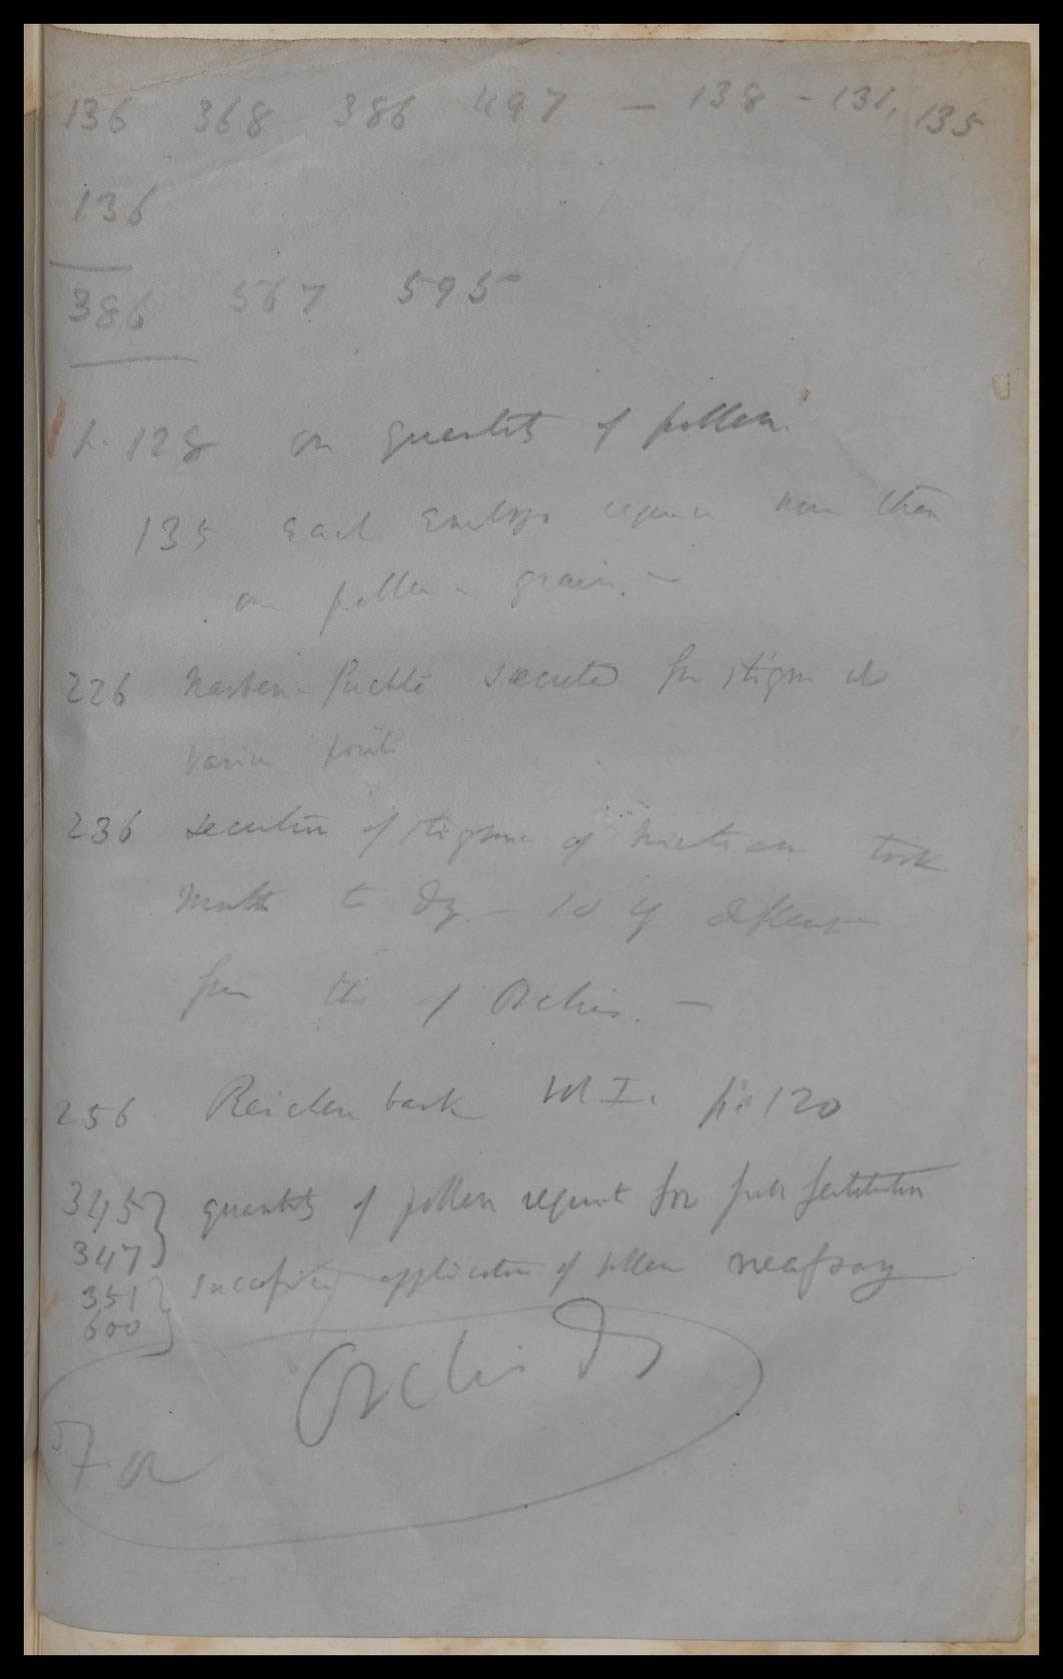 136 368 386 497 — 138 – 131, 135
136
386 567 595
p. 128 on quantity of pollen.
135 Each Embryo requires more than
one pollen-grain.—
226 Narben-fuchtē secreted from stigma at
various points
236 secretion of stigma of Nicotiana took
months to dry —
from this of Orchis. —
256 Reichenbach Vol I. p. 120
345 quantity of pollen requisite for full fertilisation
347
351 successive application of pollen necessary
600
Orchids
For